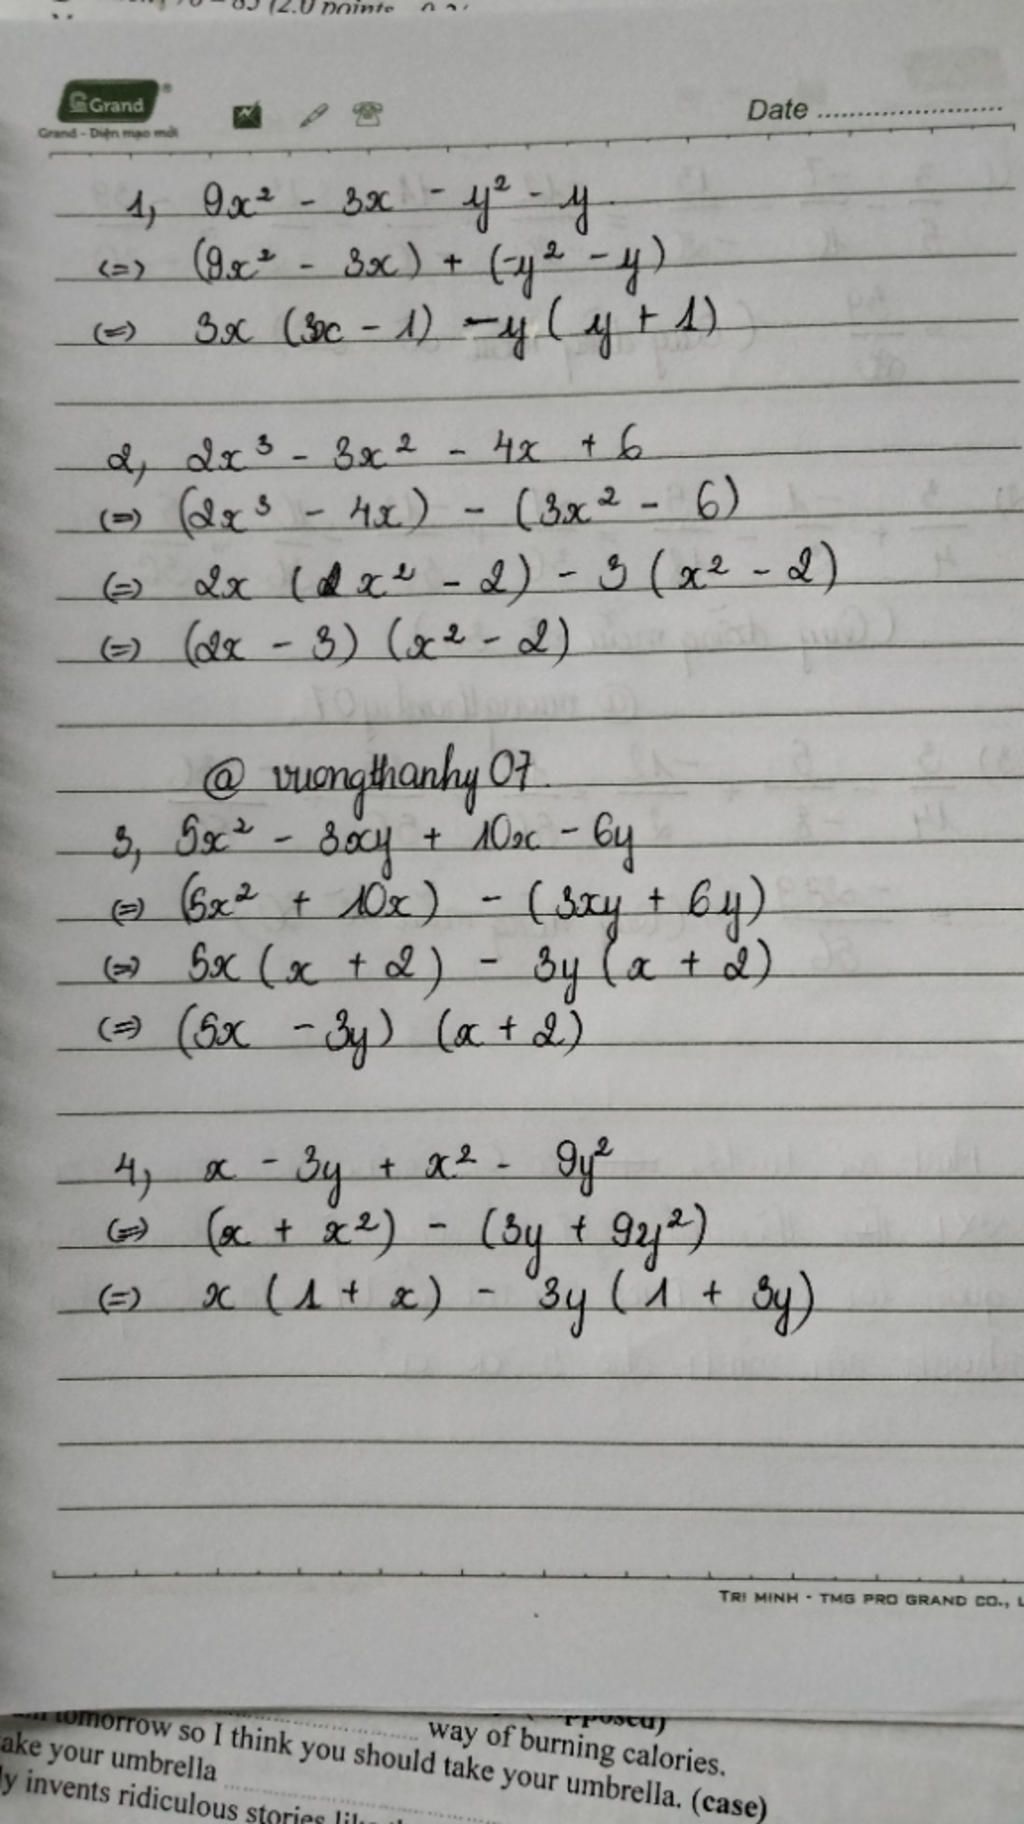 Grand
Grand - Diện mạo mới
Date
1, 9x² - 3x - y² - y
(=) (9x² - 3x) + (-y² - y)
(=) 3x (3x - 1) - y ( y + 1)
2, 2x³ - 3x² - 4x + 6
(=) (2x³ - 4x) - (3x² - 6)
(=) 2x ( x² - 2) - 3 ( x² - 2)
(=) (2x - 3) (x² - 2)
@ vuongthanhy07
3, 5x² - 3xy + 10x - 6y
(=) (5x² + 10x) - (3xy + 6y)
(=) 5x ( x + 2) - 3y (x + 2)
(=) (5x - 3y) (x + 2)
4, x - 3y + x² - 9y²
(=) (x + x²) - (3y + 9y²)
(=) x ( 1 + x) - 3y ( 1 + 3y)
TRI MINH - TMG PRO GRAND CO.,
way of burning calories.
tomorrow so I think you should take your umbrella. (case)
ake your umbrella
y invents ridiculous stories